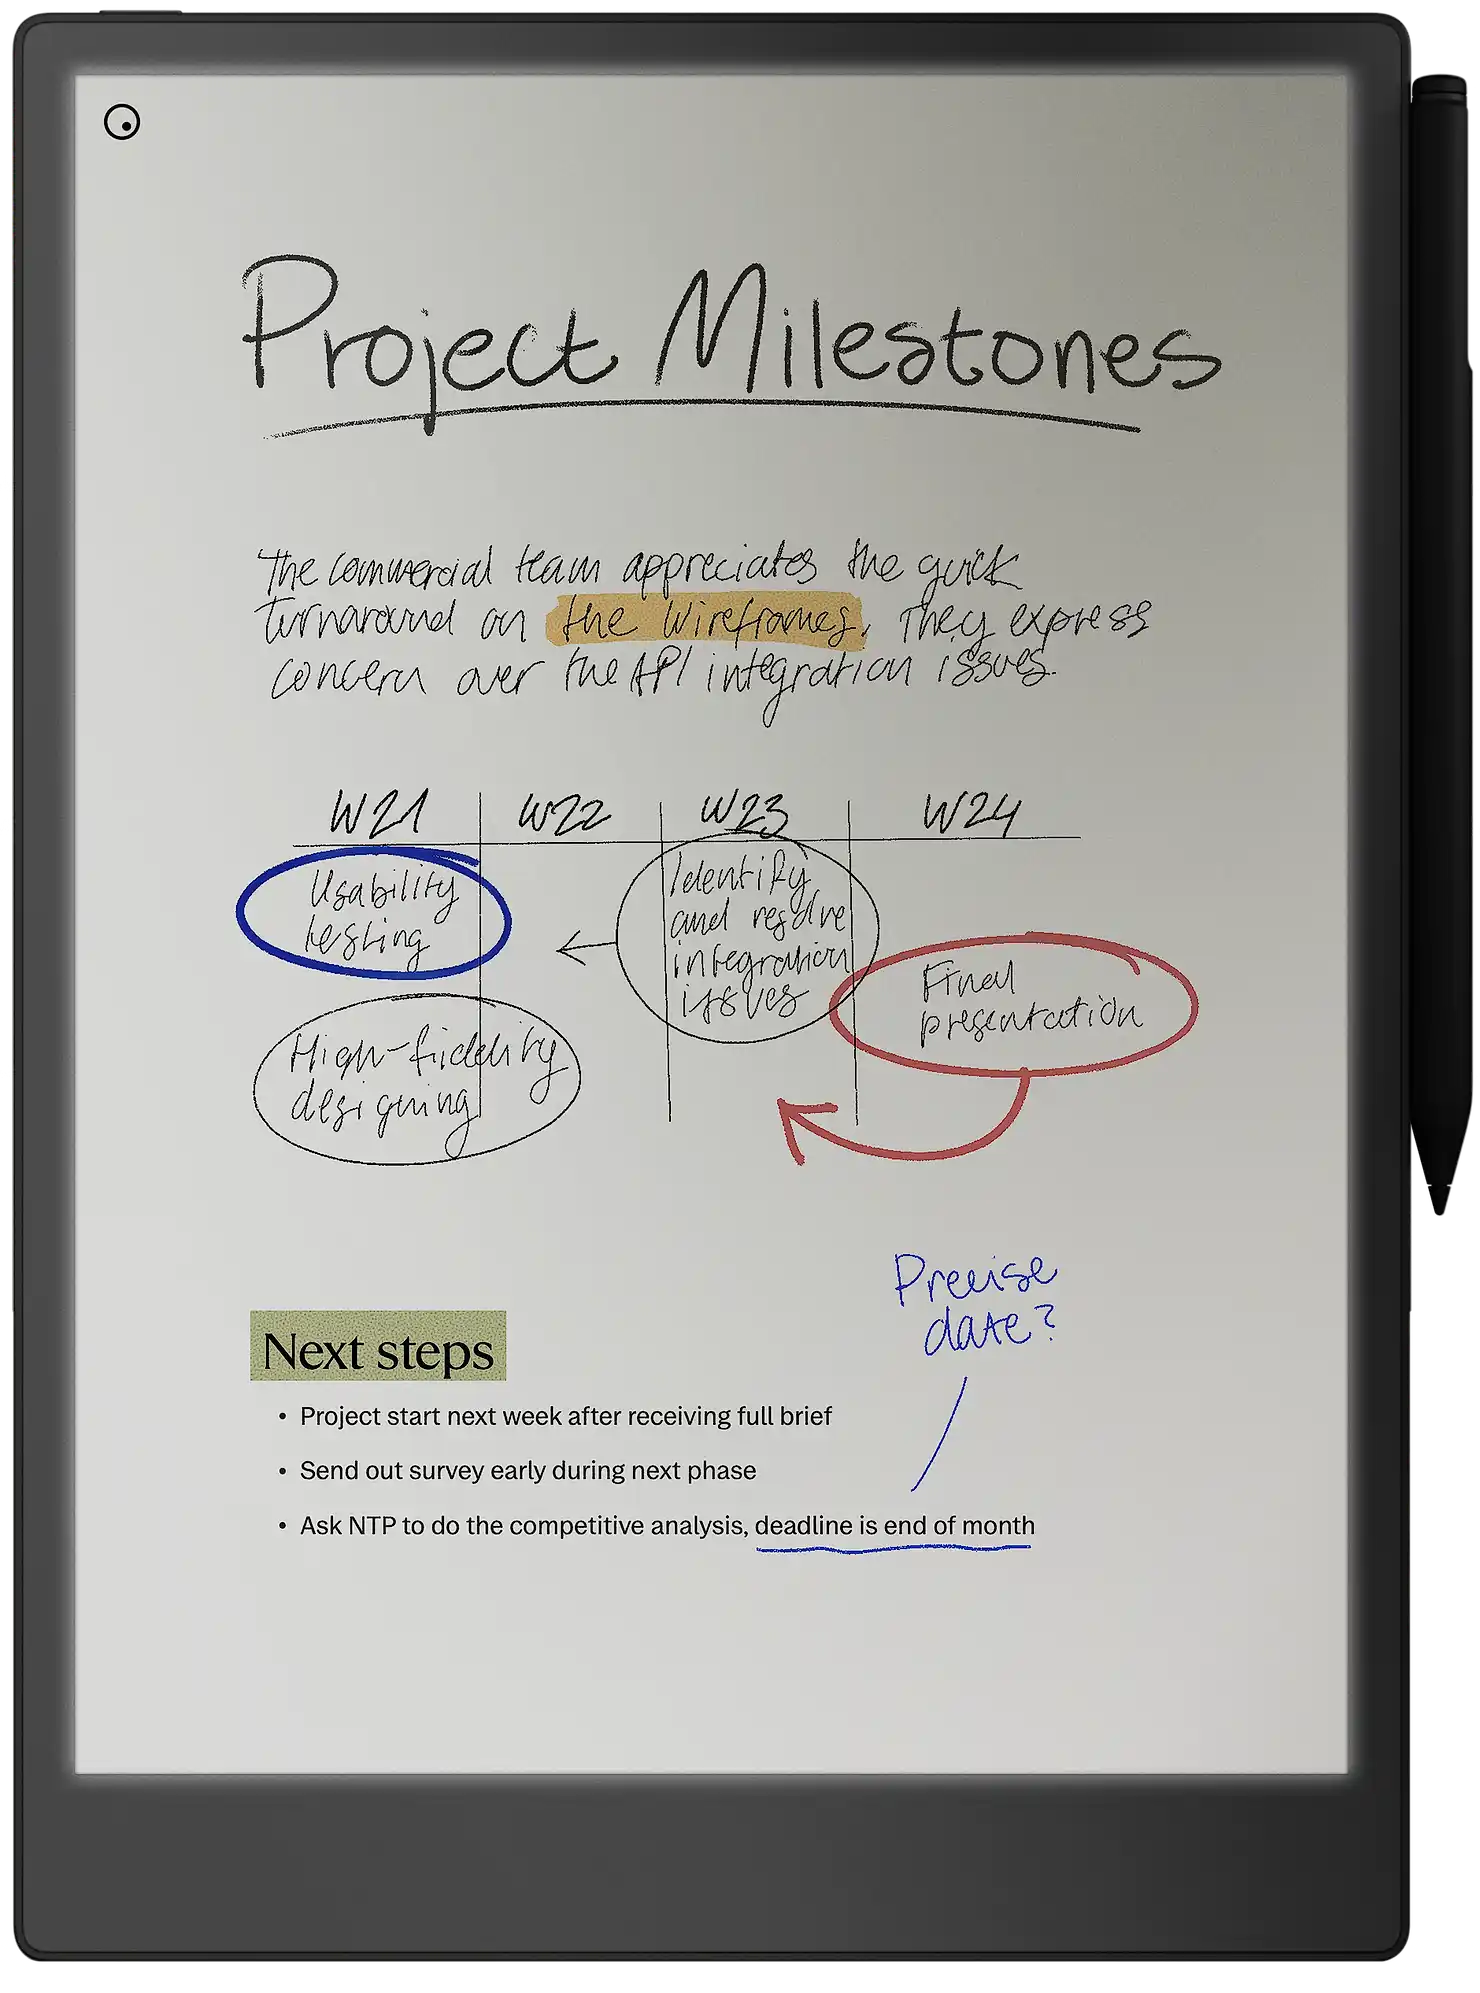 Project Milestones
The commercial team appreciates the quick
turnaround on the wireframes. They express
concern over the API integration issues.
W21 W22 W23 W24
Usability
testing
High-fidelity
designing
Identify
and resolve
integration
issues
Final
presentation
Precise
date?
Next steps
• Project start next week after receiving full brief
• Send out survey early during next phase
• Ask NTP to do the competitive analysis, deadline is end of month